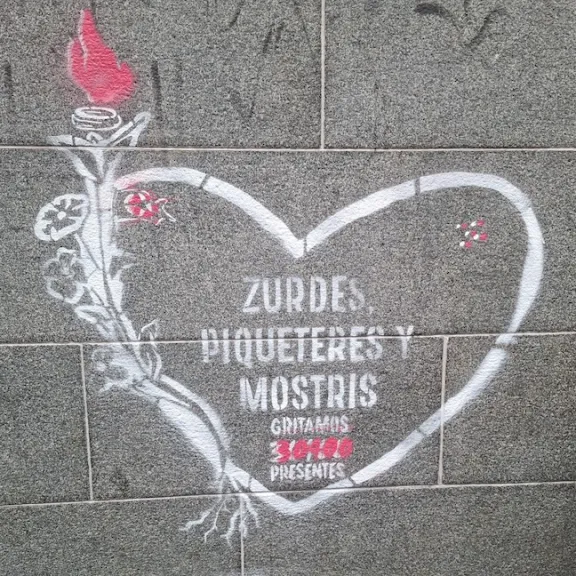 ZURDES,
PIQUETERES Y
MOSTRIS
GRITAMOS
30400
PRESENTES